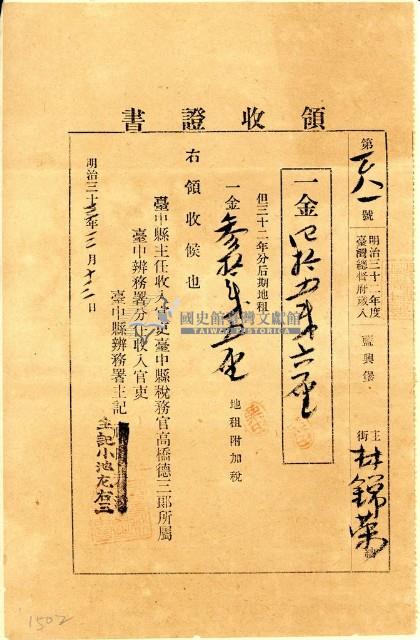 領收證書
第 一八一 號
明治三十二年度
臺灣總督府歲入
藍興堡
主
街
林錦榮
一金 四拾五錢六厘
但三十二年分后期地租
一金 參拾弐錢五厘
地租附加稅
右領收候也
明治三十三年二月十二日
臺中縣主任收入官吏臺中縣稅務官高橋德三郎所屬
臺中辨務署分任收入官吏
臺中縣辨務署主記
主記小池友右三
國史館臺灣文獻館
TAIWAN HISTORICA
1502